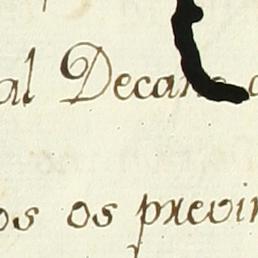 al Decano
os os previn